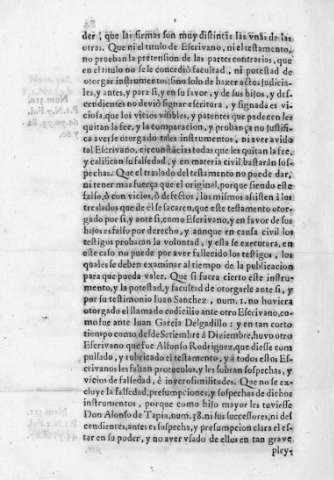 der; que las firmas son muy distinctas las vnas de las
otras. Que ni el titulo de Escrivano, ni el testamento,
no prueban la pretension de las partes contrarias, que
en el titulo no se le concedió facultad, ni potestad de
otorgar instrumentos, sino solo de hazer actos judicia-
les, y antes, y para si, y en su favor, y de sus hijos, y des-
cendientes no devió signar escritura, y signada es vi-
ciosa, que los vitios visibles, y patentes que padecen les
quitan la fee, y la comparacion, y probanças no justifi-
ca averse otorgado tales instrumentos, ni aver avido
tal Escrivano, circunstãcias todas que les quitan la fee,
y califican su falsedad, y en materia civil bastarán sos-
pechas. Que el traslado del testamento no puede dar,
ni tener mas fuerça que el original, porque siendo este
falso, ò con vicios, ò defectos, los mismos assisten à los
treslados que de èl se sacaren, que este testamento otor-
gado por si, y ante si, como Escrivano, y en favor de sus
hijos es falso por derecho, y aunque en causa civil los
testigos probaràn la voluntad, y esta se executara, en
este caso no puede por aver fallecido los testigos, los
quales se deben examinar al tiempo de la publicacion
para que pueda valer. Que si fuera cierto este instru-
mento, y la potestad, y facultad de otorgarle ante si, y
por su testimonio Iuan Sanchez, num. 1. no huviera
otorgado el llamado codicilio ante otro Escrivano, co-
mo fue ante Iuan Garcia Delgadillo: y en tan corto
tiempo como desde Setiembre à Diziembre, huvo otro
Escrivano que fue Alfonso Rodriguez, que diesse com
pulsado, y rubricado el testamento, y à todos estos Es-
crivanos les faltan protocolos, y les sobran sospechas, y
vicios de falsedad, è inverosimilitudes. Que no se ex-
cluye la falsedad, presumpciones, y sospechas de dichos
instrumentos, porque como hijo mayor les tuviesse
Don Alonso de Tapia, num. 58. ni sus successores, ni des-
cendientes, antes es sospecha, y presumpcion clara el es-
tar en su poder, y no aver vsado de ellos en tan grave
pley-